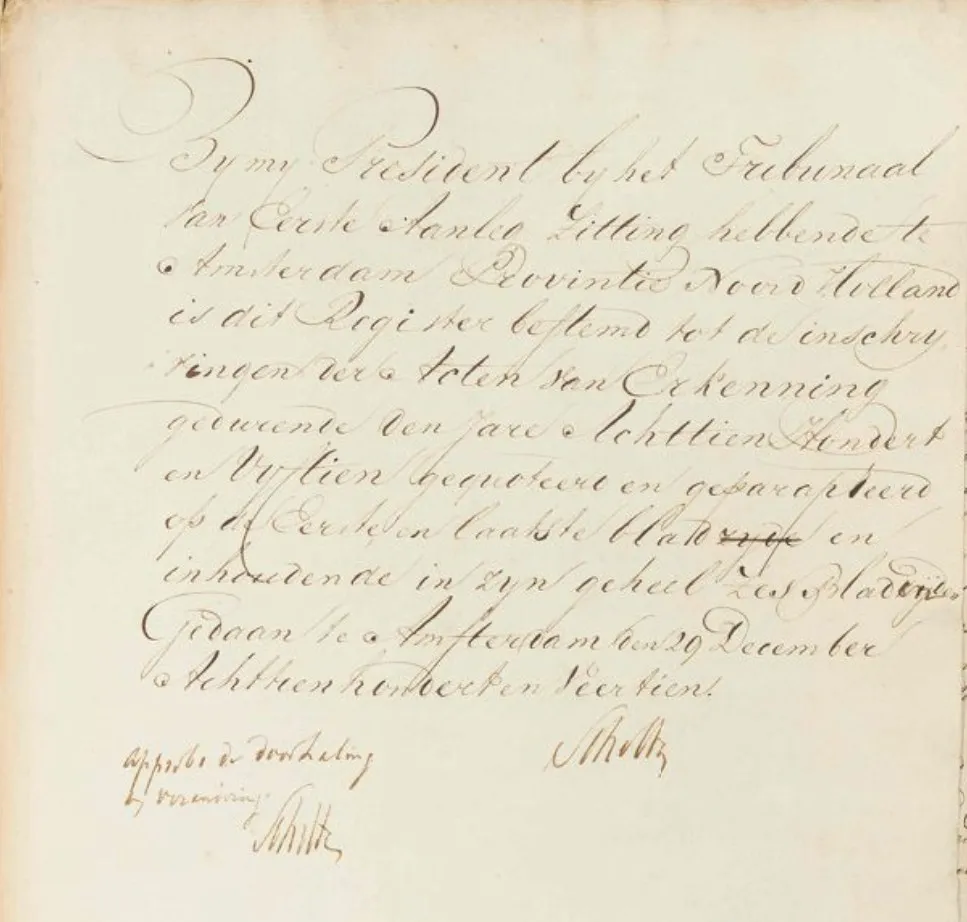 By my President by het Tribunaal
van Eerste Aanleg Zitting hebbende te
Amsterdam Provintie Noord Holland
is dit Register bestemd tot de inschry
vingen der Acten van Erkenning
gedurende den Jare Achttien Hondert
en Vyftien gequoteerd en geparapheerd
op de Eerste en laatste bladzyde en
inhoudende in zyn geheel Zes Bladzijden
Gedaan te Amsterdam den 29 December
Achttien hondert en Veertien.
Scholtz
approbo de doorhaling
Scholtz